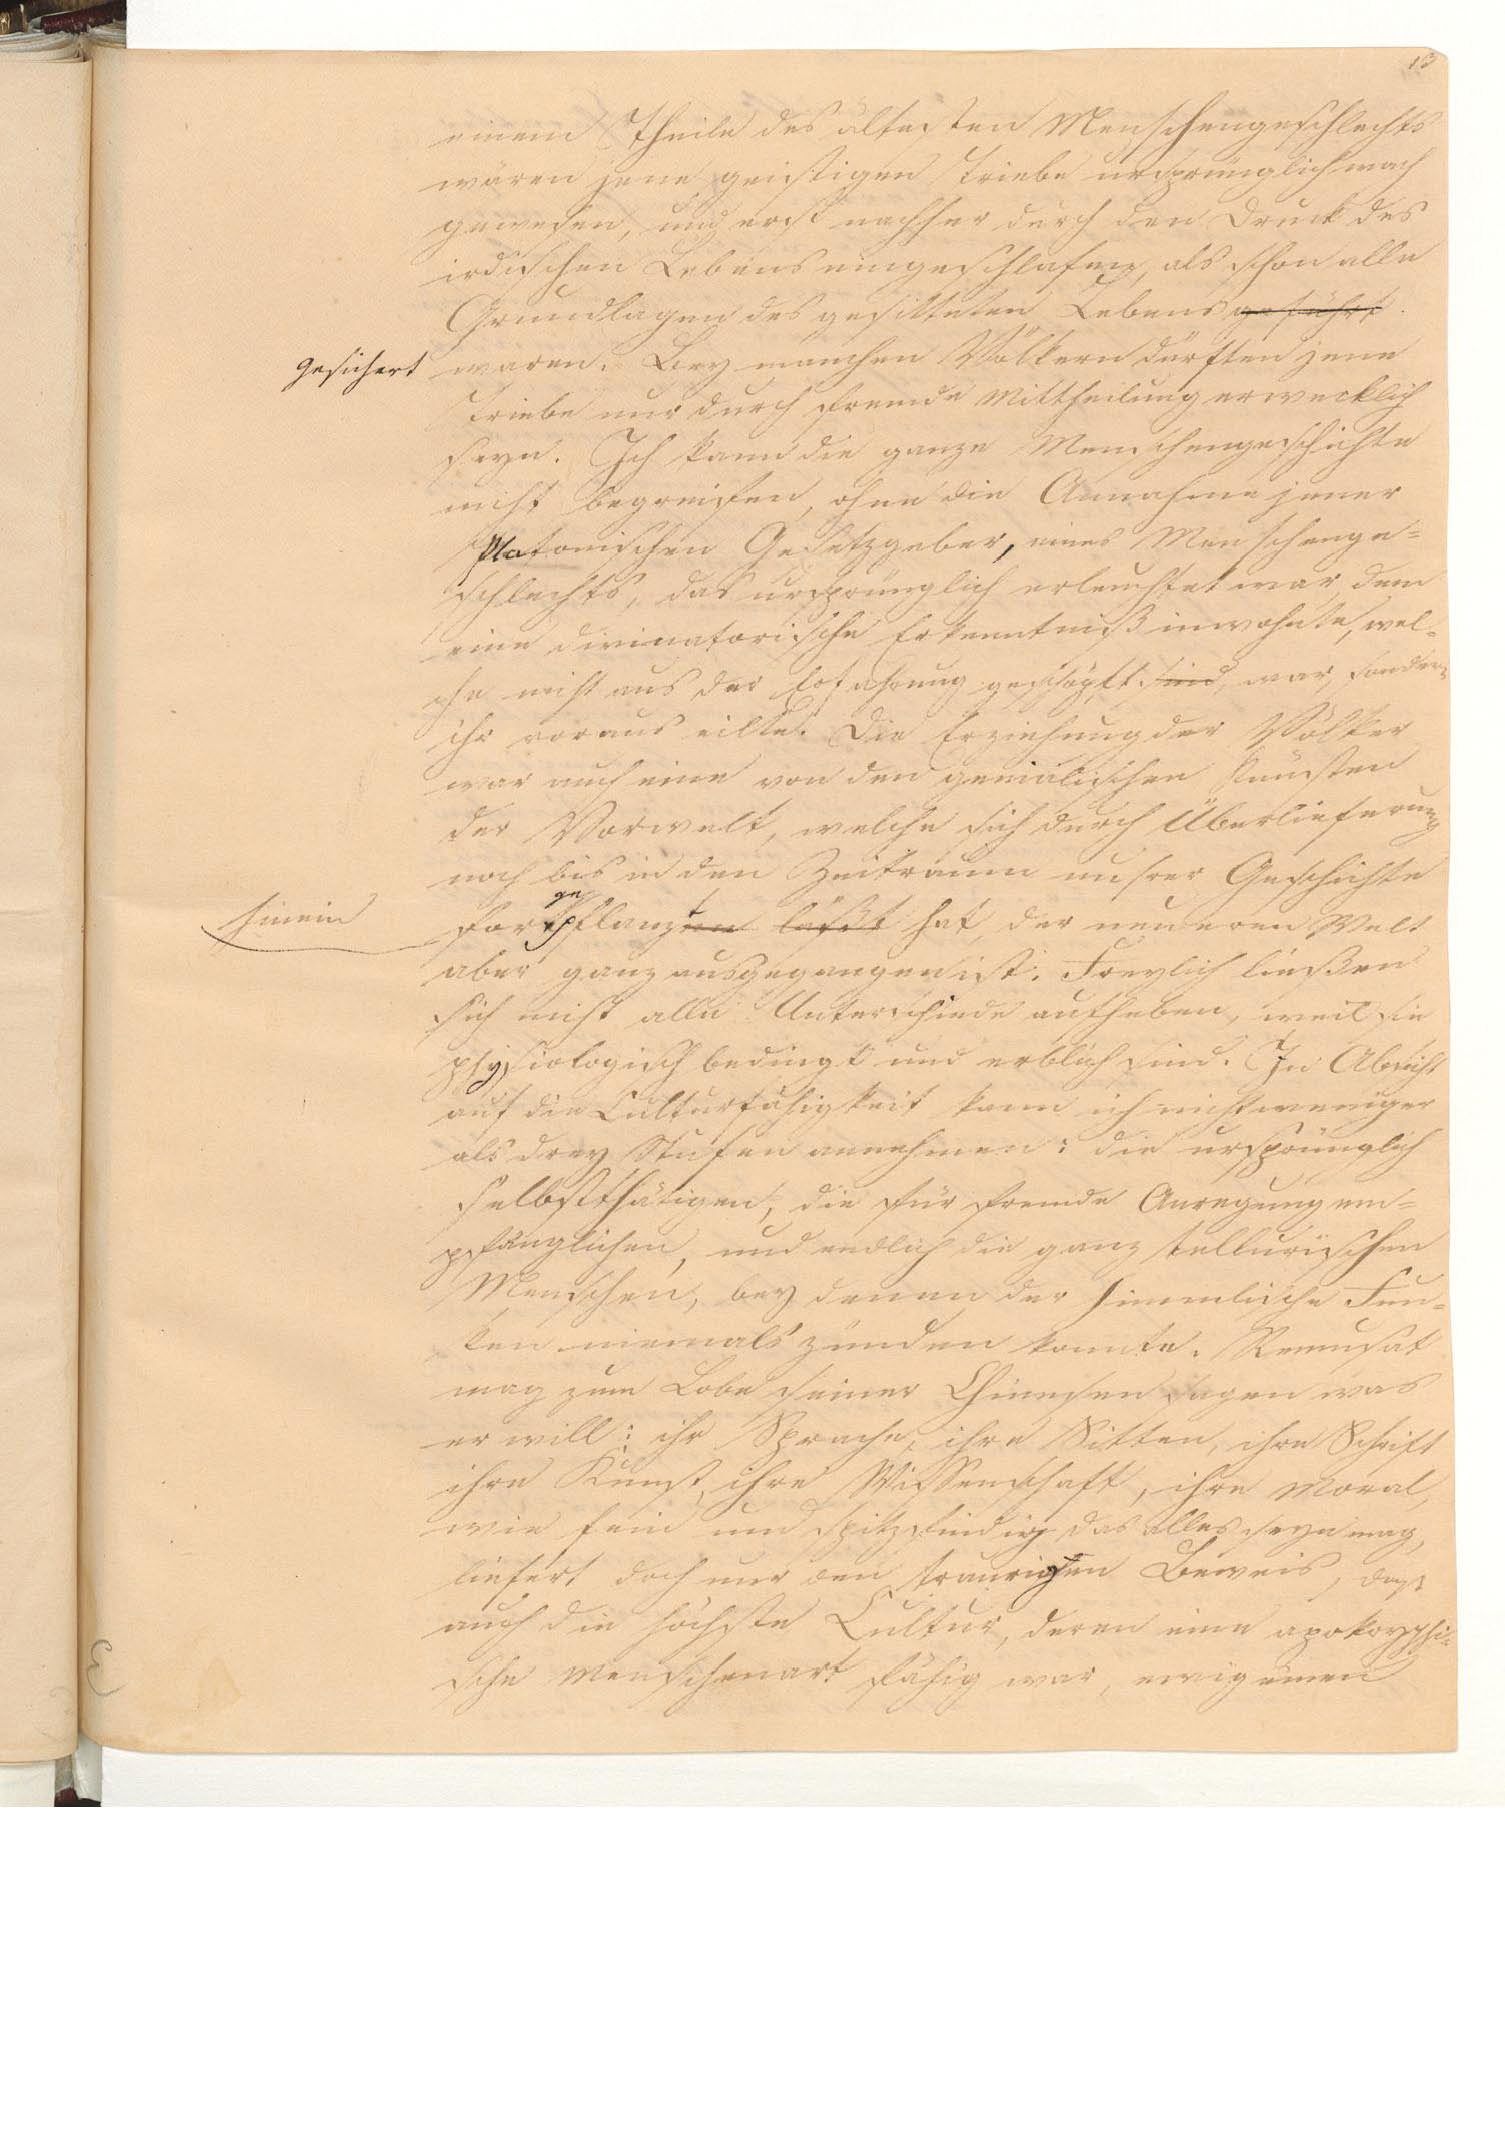 13
einem Theile des ältesten Menschengeschlechts
wären jene geistigen Triebe ursprünglich wach
gewesen, und erst nachher durch den Druck des
irdischen Lebens eingeschlafen, als schon alle
Grundlagen des gesitteten Lebens geführt
gesichert waren. Bey manchen Völkern dürften jene
Triebe nur durch fremde Mittheilung erwecklich
seyn. Ich kann die ganze Menschengeschichte
nicht begreifen, ohne die Annahme jener
Platonischen Gesetzgeber, eines Menschenge-
schlechts, das ursprünglich erleuchtet war, dem
eine divinatorische Erkenntniß inwohnte, wel-
che nicht aus der Erfahrung geschöpft sind, war, sondern
ihr voraus eilte. Die Erziehung der Völker
war auch eine von den genialischen Künsten
der Vorwelt, welche sich durch Überlieferung
noch bis in den Zeitraum unsrer Geschichte
hinein fortgepflanzt läßt hat, der neueren Welt
aber ganz ausgegangen ist. Freylich ließen
sich nicht alle Unterschiede aufheben, weil sie
physiologisch bedingt und erblich sind. In Absicht
auf die Culturfähigkeit kann ich nicht weniger
als drey Stufen annehmen: die ursprünglich
selbstthätigen, die für fremde Anregung em-
pfänglichen, und endlich die ganz tellurischen
Menschen, bey denen der himmlische Fun-
ken niemals zünden konnte. Remusat
mag zum Lobe seiner Chinesen sagen was
er will: ihr Sprache, ihre Sitten, ihre Schrift
ihre Kunst, ihre Wissenschaft, ihre Moral,
wie fein und spitzfindig das alles seyn mag,
liefert doch nur den traurigen Beweis, daß
auch die höchste Cultur, deren eine apokryphi-
sche Menschenart fähig war, ewig einen